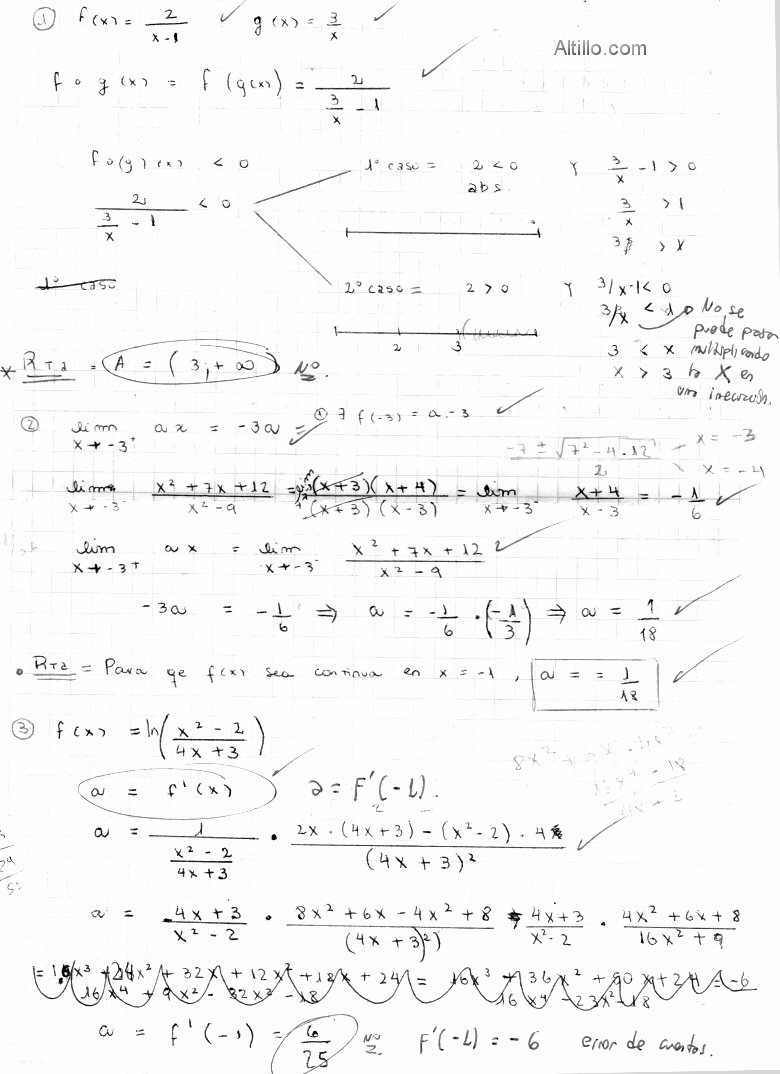 ① f(x) = 2/(x-1) ✓ g(x) = 3/x ✓
Altillo.com
f o g (x) = f (g(x)) = 2/(3/x - 1) ✓
f o (g) (x) < 0
1º caso = 2 < 0 y 3/x - 1 > 0
abs.
2/(3/x - 1) < 0
3/x > 1
3 > x
1º caso
2º caso = 2 > 0 y 3/x - 1 < 0
3/x < 1 No se
puede pasar
2 3
3 < x multiplicando
x > 3 la X en
una inecuación.
* RTA = A = (3, +∞) NO.
② lim x→-3⁺ ax = -3a = ① ∃ f(-3) = a.-3 ✓
(-7 ± √(7² - 4.12))/2 x = -3
x = -4
lim x→-3⁻ (x² + 7x + 12)/(x² - 9) = lim (x+3)(x+4)/((x+3)(x-3)) = lim x→-3⁻ (x+4)/(x-3) = -1/6 ✓
lim x→-3⁺ ax = lim x→-3⁻ (x² + 7x + 12)/(x² - 9) ✓
-3a = -1/6 ⇒ a = -1/6 . (-1/3) ⇒ a = 1/18 ✓
• RTA = Para qe f(x) sea continua en x = -1, a = = 1/18 ✓
③ f(x) = ln((x² - 2)/(4x + 3))
a = f'(x) ✓ a = F'(-1).
a = 1/((x² - 2)/(4x + 3)) . (2x . (4x+3) - (x² - 2) . 4)/(4x + 3)² ✓
a = (4x + 3)/(x² - 2) . (8x² + 6x - 4x² + 8)/(4x + 3)² (4x+3)/(x² - 2) . (4x² + 6x + 8)/(16x² + 9)
= (16x³ + 24x² + 32x + 12x² + 18x + 24)/(16x⁴ + 9x² - 32x² - 18) = (16x³ + 36x² + 50x + 24)/(16x⁴ - 23x² - 18) = -6
a = f'(-1) = 6/25 NO F'(-1) = -6 error de cuentas.